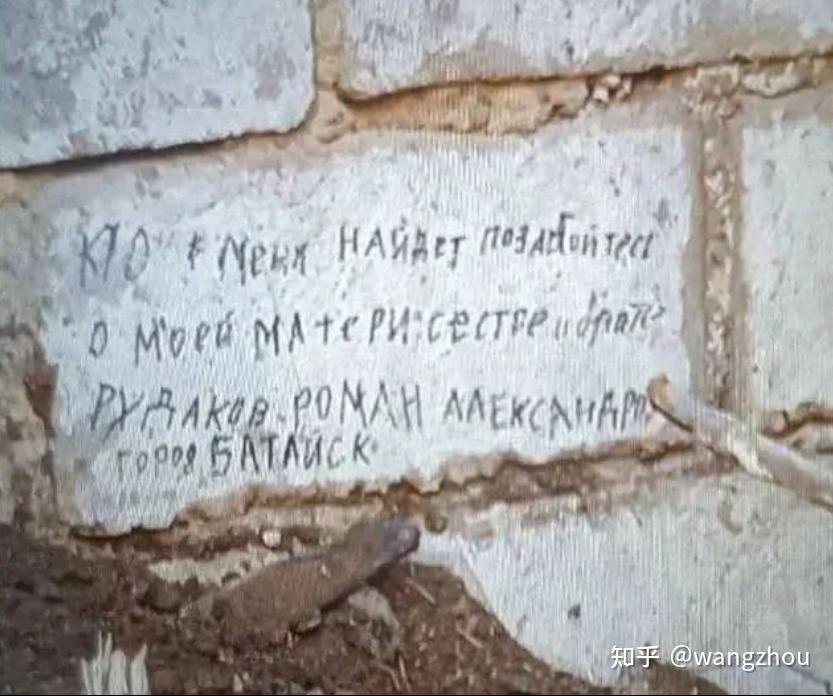 КТО меня НАЙДЕТ позаботтесь
О МОЕЙ МАТЕРИ СЕСТРЕ и брате
РУДАКОВ РОМАН АЛЕКСАНДРО
город БАТАЙСК
知乎 @wangzhou